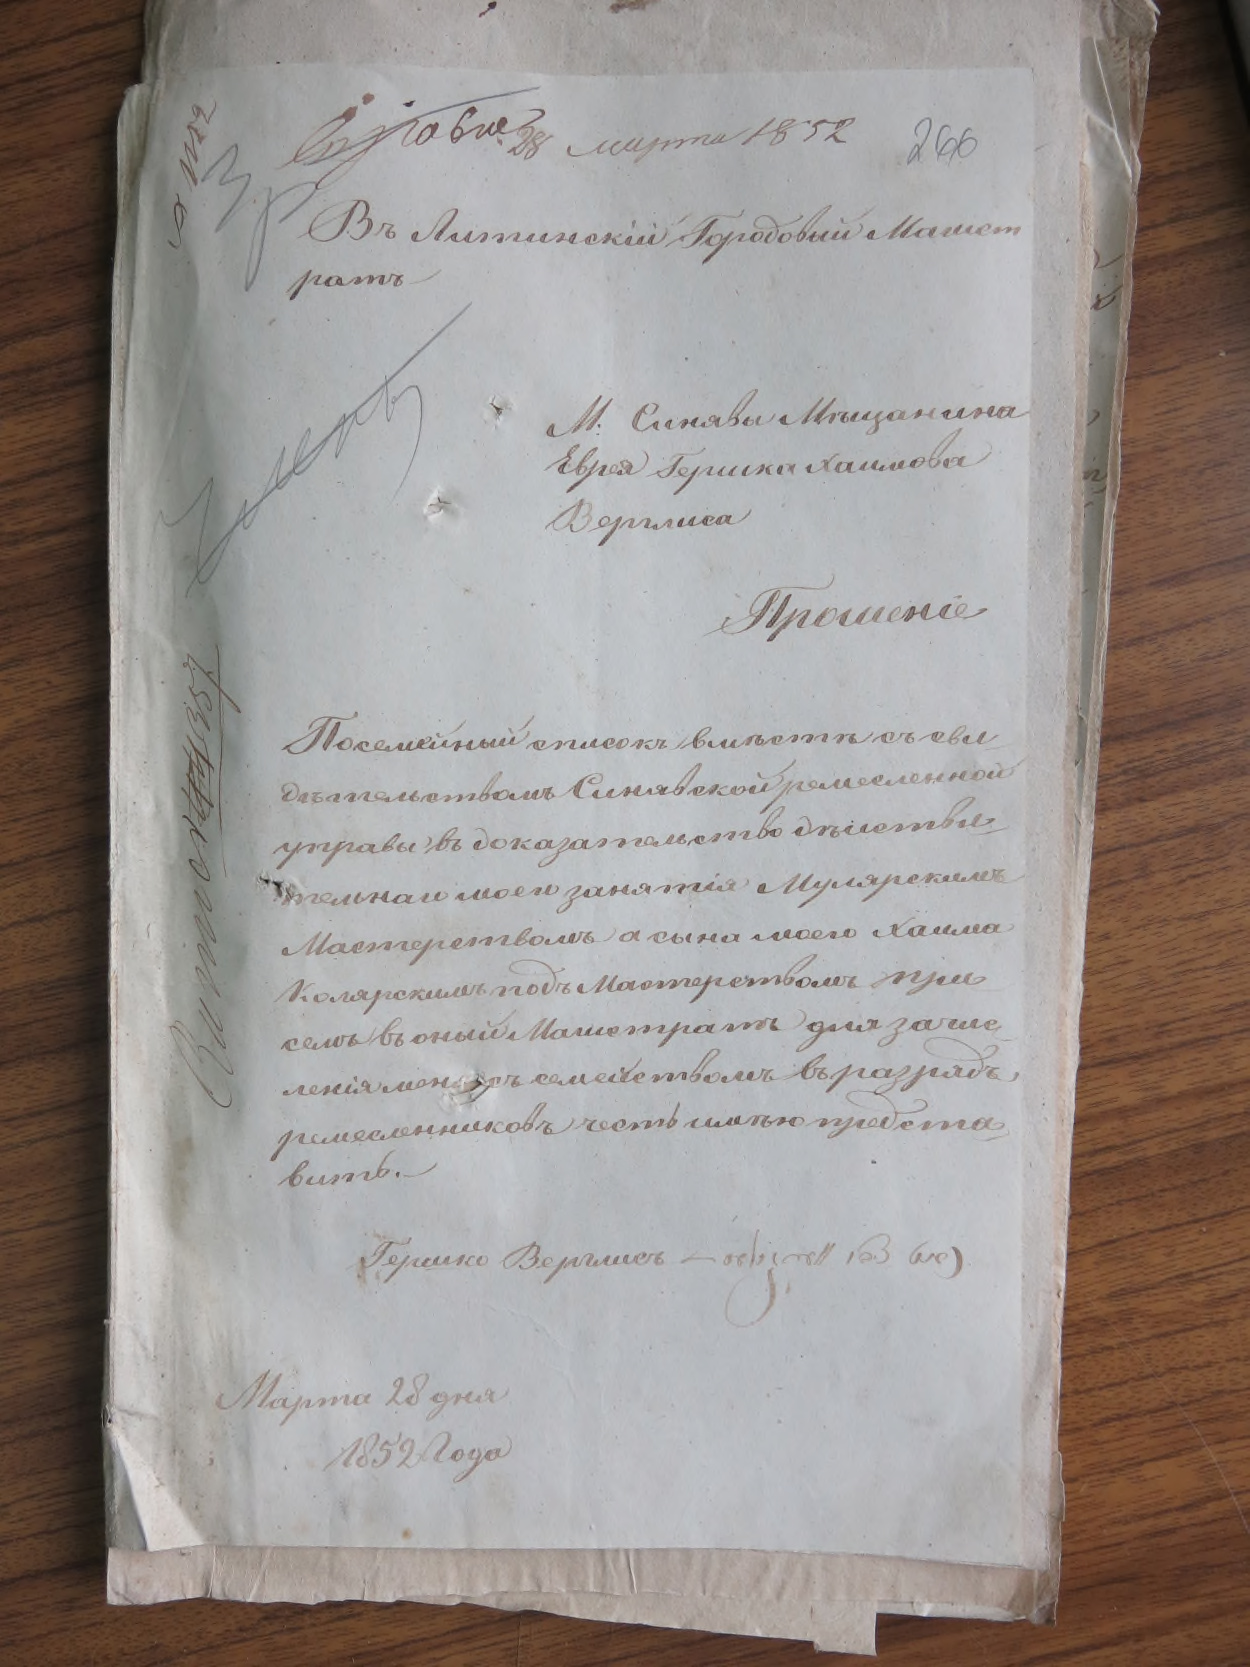 28 марта 1852
266
Въ Литинскій Городовый Магист
ратъ
М. Синявы Мѣщанина
Еврея Гершка Хаимова
Верглиса
Прошеніе
Посемейный списокъ вмѣстѣ съ сви
дѣтельствомъ Синявской ремесленной
управы въ доказательство дѣйстви
тельнаго моего занятія Мулярскимъ
Мастерствомъ а сына моего Хаима
Колярскимъ подъ Мастерствомъ при
семъ въ оный Магистратъ для зачис
ленія меня съ семействомъ въ разрядъ
ремесленниковъ честь имѣю предста
вить.
Гершко Верглисъ —
Марта 28 дня
1852 Года